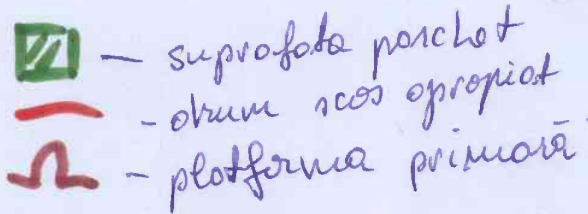 - suprafata parchet
- drum scos apropiat
- platforma primară